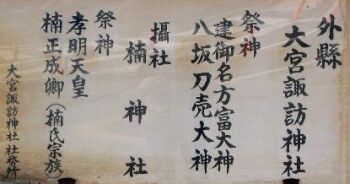 外縣
大宮諏訪神社
祭神
建御名方富大神
八坂刀売大神
攝社
楠神社
祭神
孝明天皇
楠正成卿(楠氏宗族)
大宮諏訪神社社務所